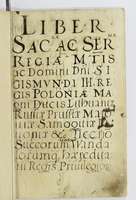 LIBER
SAC: AC SER:
REGIÆ MTIS
ac Domini Dni SI
GISMVNDI III. RE
GIS POLONIÆ Ma
gni Ducis Lithuaniæ
Russiæ Prussiæ
Samogitiæ
Succorum Vanda
lorumq Hæredita
rii Regis Privilegio